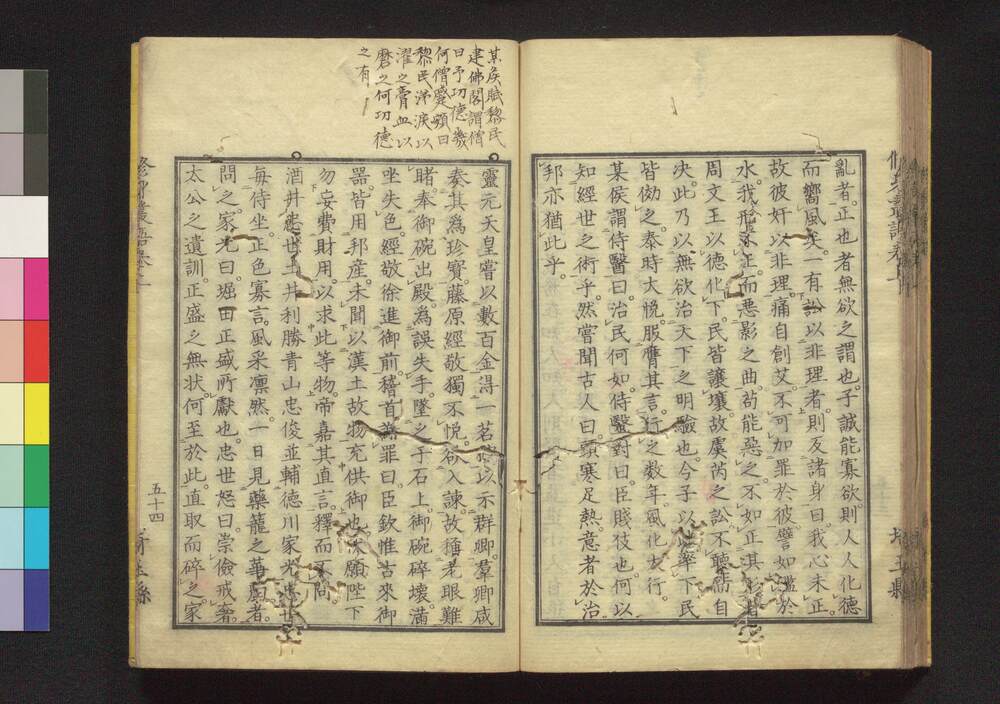 亂者。正也者無欲之謂也。子誠能寡欲。則人人化德
而嚮風矣。一有訟以非理者。則反諸身曰。我心未正。
故彼奸以非理。痛自創艾。不可加罪於彼。譬如臨於
水。我形不正。而惡影之曲。苟能惡之。不如正其形
周文王以德化下。民皆讓壤。故虞芮之訟。不聽而自
決。此乃以無欲治天下之明驗也。今子以 率下民
皆傚之。泰時大悅。服膺其言。行之数年。風化大行。
某侯謂侍醫曰。治民何如。侍醫對曰。臣賤伎也。何以
知經世之術乎。然嘗聞古人曰。頭寒足熱。意者於治
邦亦猶此乎。
某侯賦黎民
建佛閣謂僧
曰予功德幾
何僧蹙頞曰
黎民涕淚以
濯之膏血以
磨之何功德
之有
靈元天皇嘗以數百金得一茗 以示群卿。羣卿咸
奏其爲珍寶。藤原經敬獨不悅。欲入諫。故稱老眼難
睹。奉御碗出殿。爲誤失手。墜之于石上。御碗碎壞。滿
坐失色。經敬徐進御前。稽首謝罪曰。臣欽惟古來御
器。皆用邦産。未聞以漢土故物充供御也。 願陛下
勿妄費財用。以求此等物。帝嘉其直言。釋而不問。
酒井忠世土井利勝青山忠俊並輔德川家光。忠世
每侍坐。正色寡言。風采凛然。一日見藥籠之華麗者。
問之。家光曰。堀田正盛所獻也。忠世怒曰。崇儉戒奢。
太公之遺訓。正盛之無狀。何至於此。直取而碎之。家
五十四